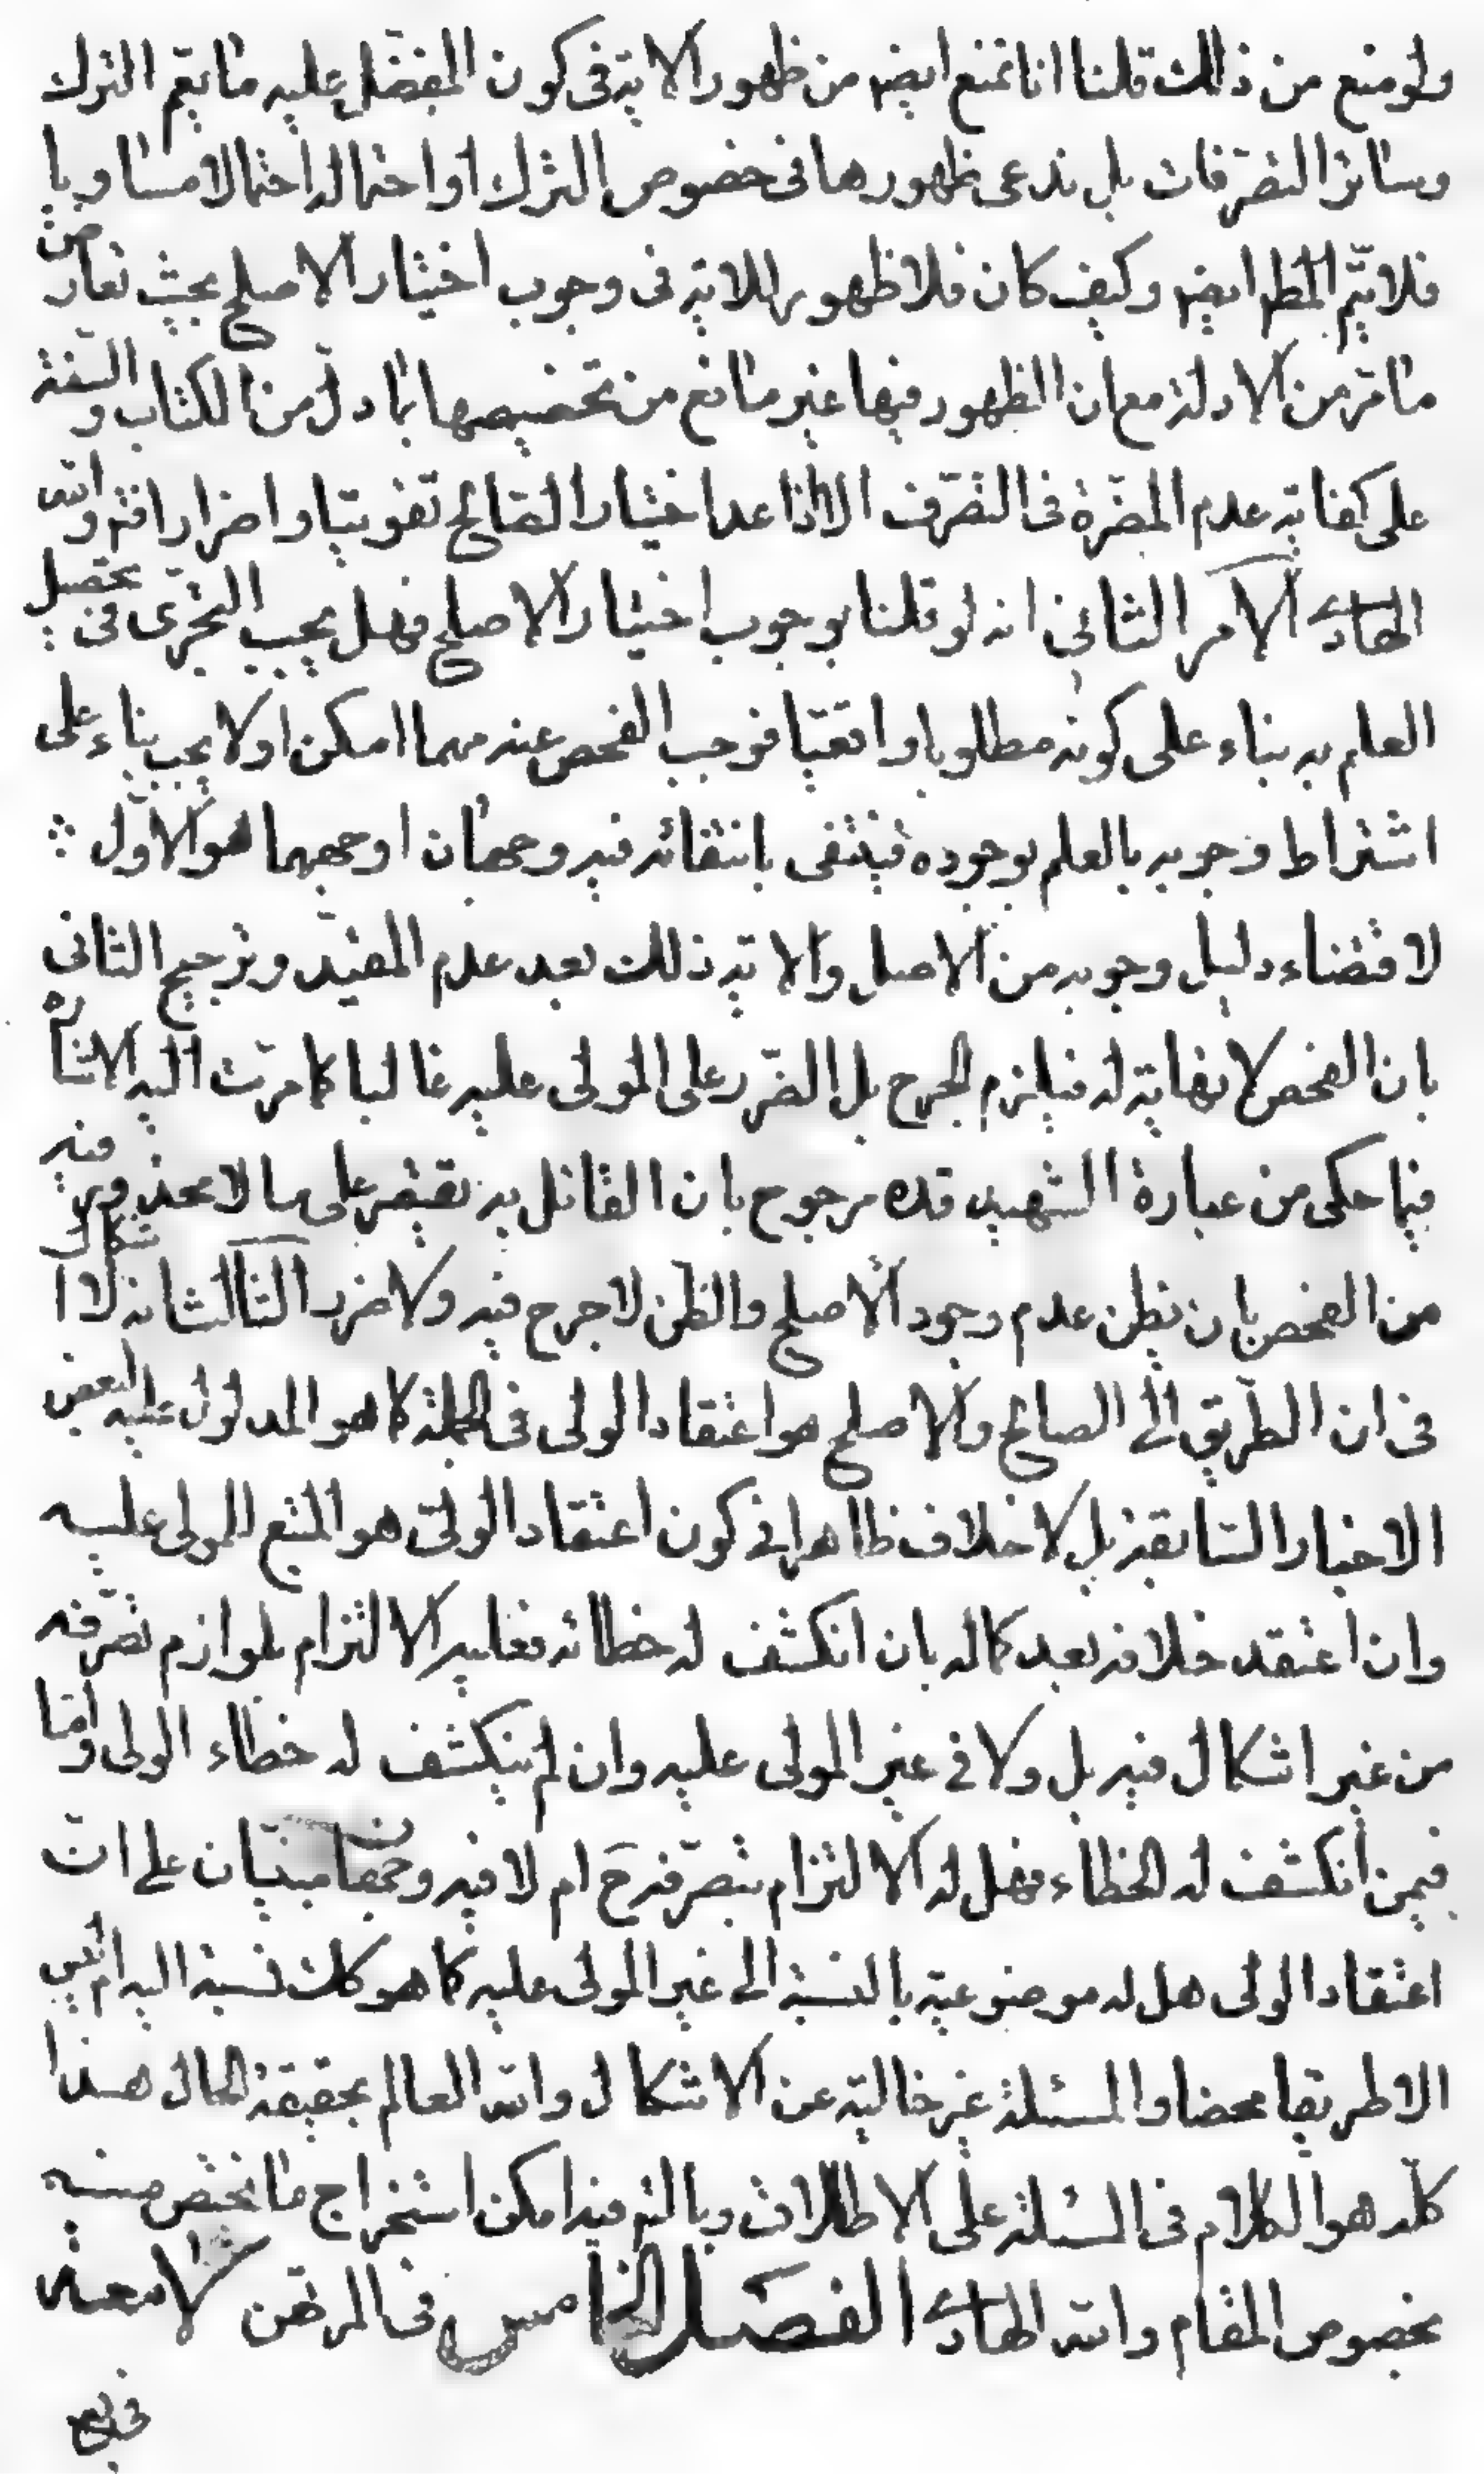 ولو منع من ذلك قلنا انا نمنع ايضہ من ظهور الاية فى كون المفضل عليه ما يعم الترك
وسائر التصرفات بل ندعى ظهورها فى خصوص الترك او احتماله احتمالا مساويا
فلا يتم المط ايضہ وكيف كان فلا ظهور للاية فى وجوب اختيار الاصلح بحيث تعارض
ما مر من الادلة مع ان الظهور فيها غير مانع من تخصيصها بما دل من الكتاب والسنة
على كفاية عدم المضرة فى التصرف الا اذا عد اختيار الصالح تفويتا واضرارا فتم والله
الهادى الامر الثانى انه لو قلنا بوجوب اختيار الاصلح فهل يجب التحرى فى تحصيل
العلم به بناء على كونه مطلوبا واقعيا فوجب الفحص عنه مهما امكن او لا يجب بناء على
اشتراط وجوبه بالعلم بوجوده فينتفى بانتفائه فيه وجهان اوجههما هو الاول
لاقتضاء دليل وجوبه من الاصل والاية ذلك بعد عدم المقيد وترجيح الثانى
بان الفحص لا نهاية له فيلزم الحرج بل الضرر على المولى عليه غالبا كما مرت اليه الاشارة
فيما حكى من عبارة الشهيد قده مرجوح بان القائل به يقتصر على ما لا محذور فيه
من الفحص بان يظن عدم وجود الاصلح والظن لا حرج فيه ولا ضرر الثالث انه لا اشكال
فى ان الطريق الى الصالح والاصلح هو اعتقاد الولى فى الجملة كما هو المدلول عليه لبعض
الاخبار السابقة بل لا خلاف ظاهرا فى كون اعتقاد الولى هو المتبع للمولى عليه
وان اعتقد خلافه بعد كماله بان انكشف له خطائه فعليه الالتزام بلوازم تصرفه
من غير اشكال فيه بل ولا فى غير المولى عليه وان لم ينكشف له خطاء الولى واما
فيمن انكشف له الخطاء فهل له الالتزام بتصرفه ح ام لا فيه وجهان مبنيان على ان
اعتقاد الولى هل له موضوعية بالنسبة الى غير المولى عليه كما هو كك نسبة اليه ام ليس
الا طريقا محضا والمسئلة غير خالية عن الاشكال والله العالم بحقيقة الحال هذا
كله هو الكلام فى المسئلة على الاطلاق وبالتم فيه امكن استخراج ما يختص منه
بخصوص المقام والله الهادى الفصل الخامس فى المرتهن لا شبهة